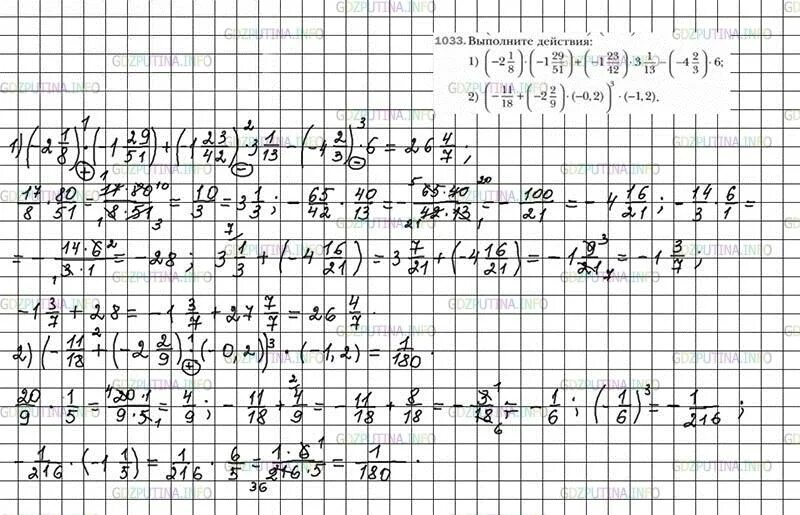 GDZPUTINA.INFO
1033. Выполните действия:
1) (-2 1/8) · (-1 29/51) + (-1 23/42) · 3 1/13 - (-4 2/3) · 6;
2) (-11/18 + (-2 2/9) · (-0,2))³ · (-1,2).
1) (-2 1/8) · (-1 29/51) + (-1 23/42) · 3 1/13 - (-4 2/3) · 6 = 26 4/7 ;
17/8 · 80/51 = 17·80/8·51 = 10/3 = 3 1/3 ; - 65/42 · 40/13 = - 65·40/42·13 = - 100/21 = - 4 16/21 ; - 14/3 · 6/1 =
= - 14·6/3·1 = -28 ; 3 1/3 + (-4 16/21) = 3 7/21 + (-4 16/21) = -1 9/21 = -1 3/7 ;
-1 3/7 + 28 = -1 3/7 + 27 7/7 = 26 4/7 .
2) (- 11/18 + (-2 2/9) · (-0,2))³ · (-1,2) = 1/180 .
20/9 · 1/5 = 20·1/9·5 = 4/9 ; - 11/18 + 4/9 = - 11/18 + 8/18 = - 3/18 = - 1/6 ; (- 1/6)³ = - 1/216 ;
- 1/216 · (-1 1/5) = 1/216 · 6/5 = 1·6/216·5 = 1/180 .